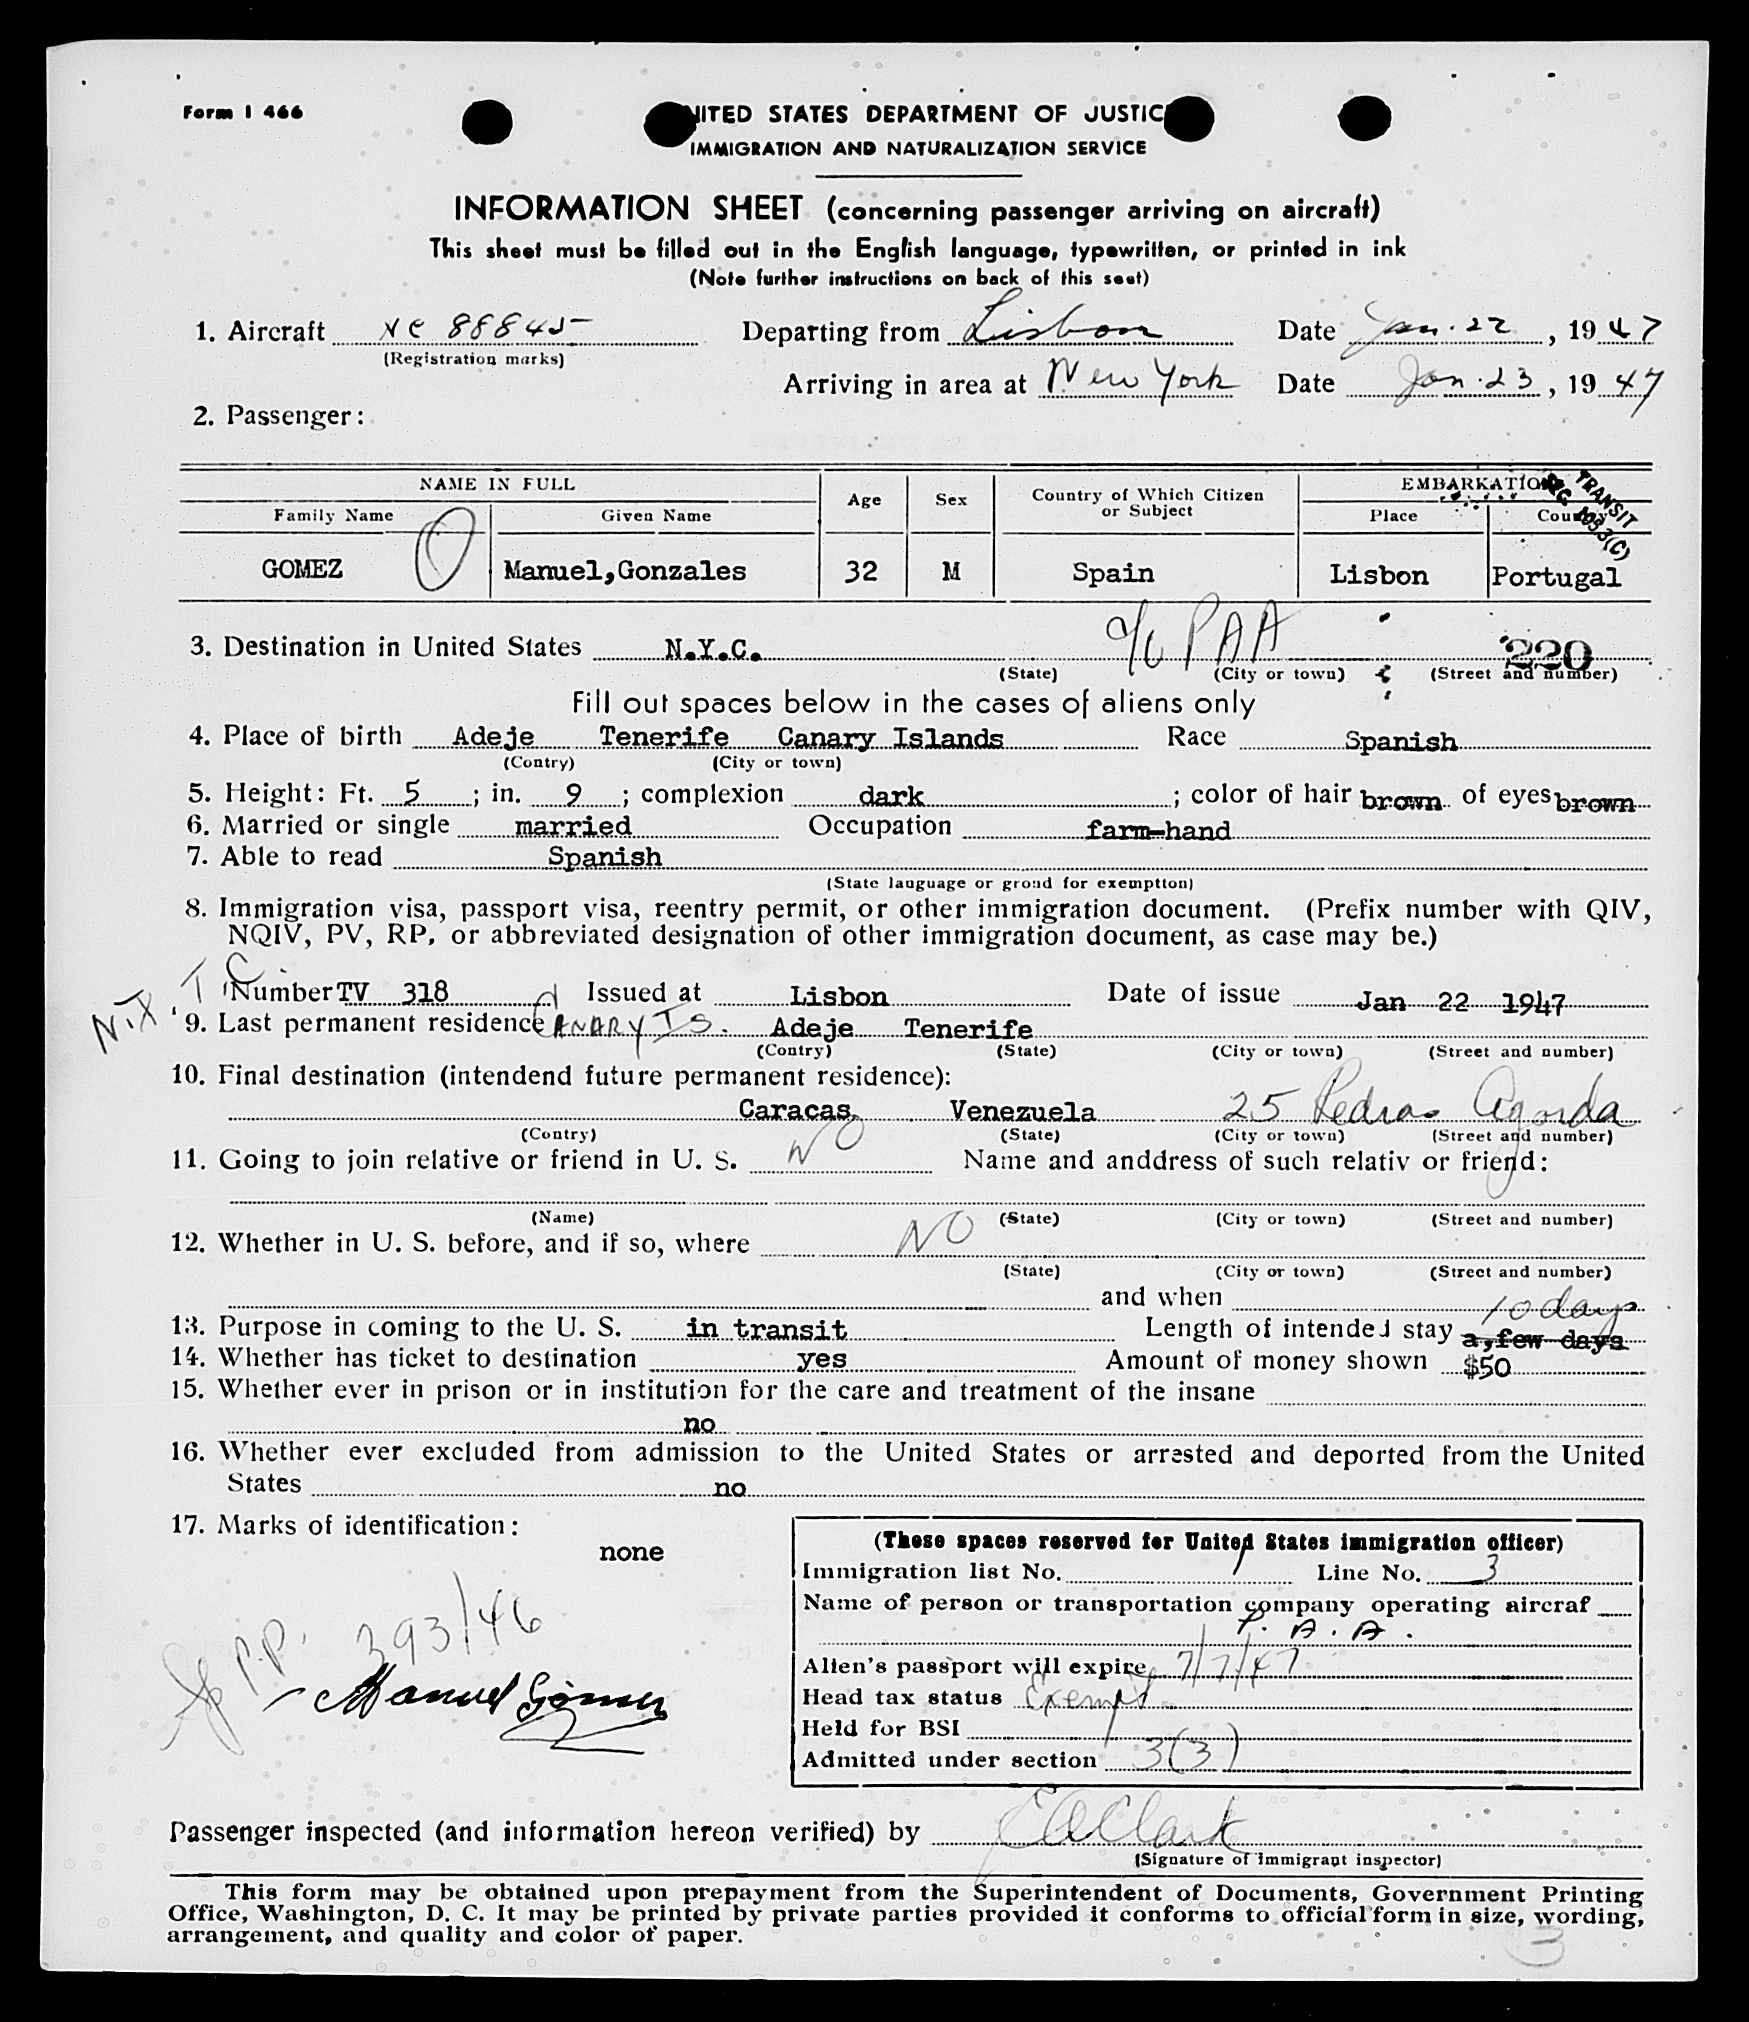 Form I 466
UNITED STATES DEPARTMENT OF JUSTICE
IMMIGRATION AND NATURALIZATION SERVICE
INFORMATION SHEET (concerning passenger arriving on aircraft)
This sheet must be filled out in the English language, typewritten, or printed in ink
(Note further instructions on back of this seet)
1. Aircraft NC 88845 Departing from Lisbon Date Jan. 22, 1947
(Registration marks)
Arriving in area at New York Date Jan. 23, 1947
2. Passenger:
NAME IN FULL Age Sex Country of Which Citizen or Subject EMBARKATION
Family Name Given Name Place Country
TRANSIT
REG. 103.3(C)
GOMEZ Manuel,Gonzales 32 M Spain Lisbon Portugal
3. Destination in United States N.Y.C. c/o PAA 220
(State) (City or town) (Street and number)
Fill out spaces below in the cases of aliens only
4. Place of birth Adeje Tenerife Canary Islands Race Spanish
(Contry) (City or town)
5. Height: Ft. 5; in. 9; complexion dark; color of hair brown of eyes brown
6. Married or single married Occupation farm-hand
7. Able to read Spanish
(State language or groud for exemption)
8. Immigration visa, passport visa, reentry permit, or other immigration document. (Prefix number with QIV,
NQIV, PV, RP, or abbreviated designation of other immigration document, as case may be.)
T C
Number TV 318 Issued at Lisbon Date of issue Jan 22 1947
9. Last permanent residence CANARY IS. Adeje Tenerife
(Contry) (State) (City or town) (Street and number)
10. Final destination (intendend future permanent residence):
Caracas, Venezuela 25 Pedras
(Contry) (State) (City or town) (Street and number)
11. Going to join relative or friend in U. S. NO Name and anddress of such relativ or friend:
(Name) (State) (City or town) (Street and number)
12. Whether in U. S. before, and if so, where NO
(State) (City or town) (Street and number)
and when
10 days
13. Purpose in coming to the U. S. in transit Length of intended stay a,few days
14. Whether has ticket to destination yes Amount of money shown $50
15. Whether ever in prison or in institution for the care and treatment of the insane
no
16. Whether ever excluded from admission to the United States or arrested and deported from the United
States no
17. Marks of identification:
none
P.P. 393/46
Manuel Gómez
(These spaces reserved for United States immigration officer)
Immigration list No. 1 Line No. 3
Name of person or transportation company operating aircraf
P. A. A.
Alien's passport will expire 7/7/47
Head tax status Exempt
Held for BSI
Admitted under section 3(3)
Passenger inspected (and information hereon verified) by EAClark
(Signature of Immigrant inspector)
This form may be obtained upon prepayment from the Superintendent of Documents, Government Printing
Office, Washington, D. C. It may be printed by private parties provided it conforms to official form in size, wording,
arrangement, and quality and color of paper.
3